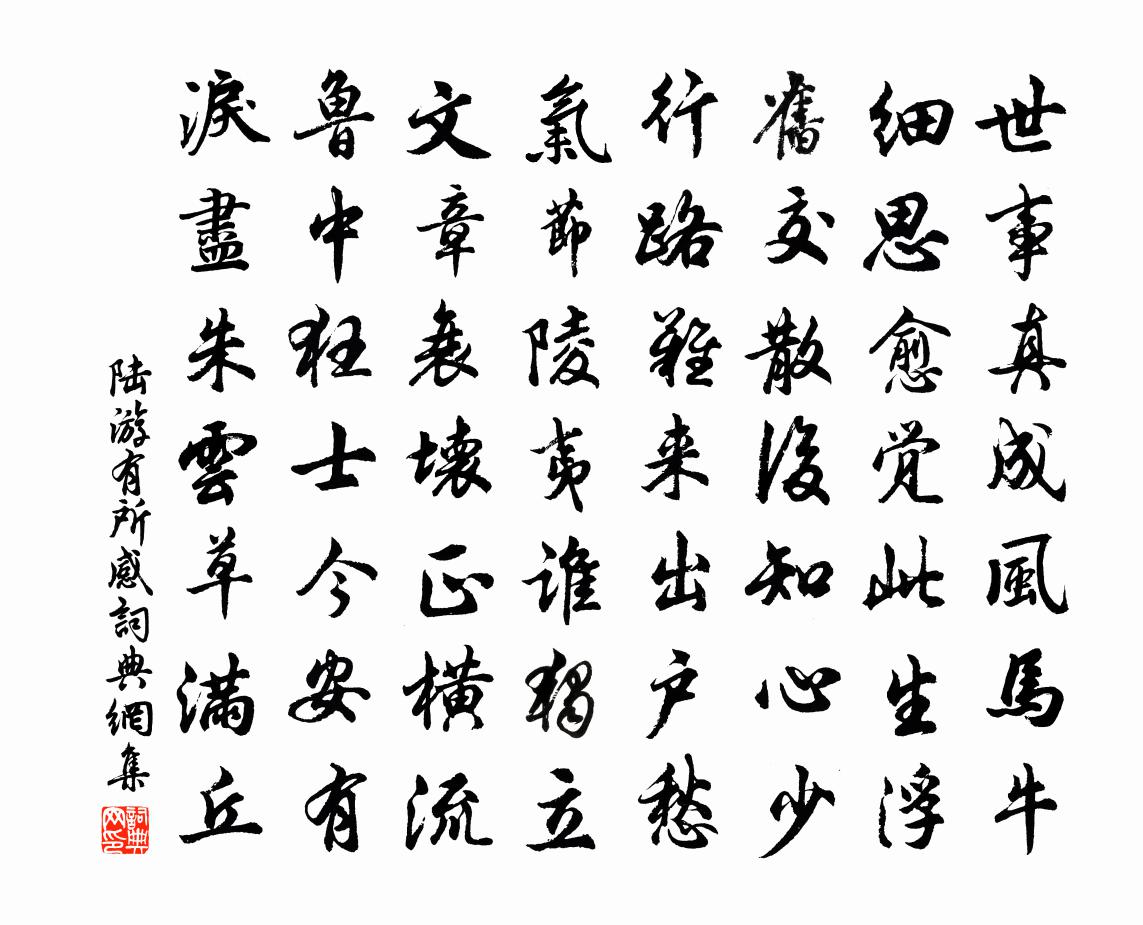 世事真成風馬牛
細思愈觉此生浮
舊交散後知心少
行路難来出户愁
氣節陵夷誰獨立
文章衰壞正横流
魯中狂士今安有
淚盡朱雲草满丘
陆游有所感詞典網集
詞典网印